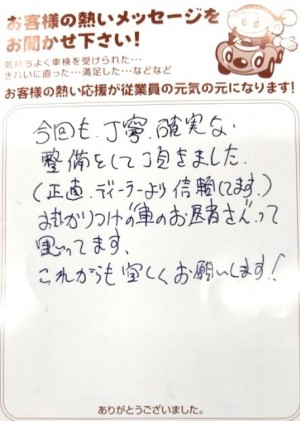 お客様の熱いメッセージを
お聞かせ下さい!
気持ちよく車検を受けられた…
きれいに直った…満足した…などなど
お客様の熱い応援が従業員の元気の元になります!
今回も、丁寧、確実な
整備をして頂きました。
(正直、ディーラーより信頼してます。)
おかかりつけの“車のお医者さん”って
思ってます、
これからも宜しくお願いします!
ありがとうございました。